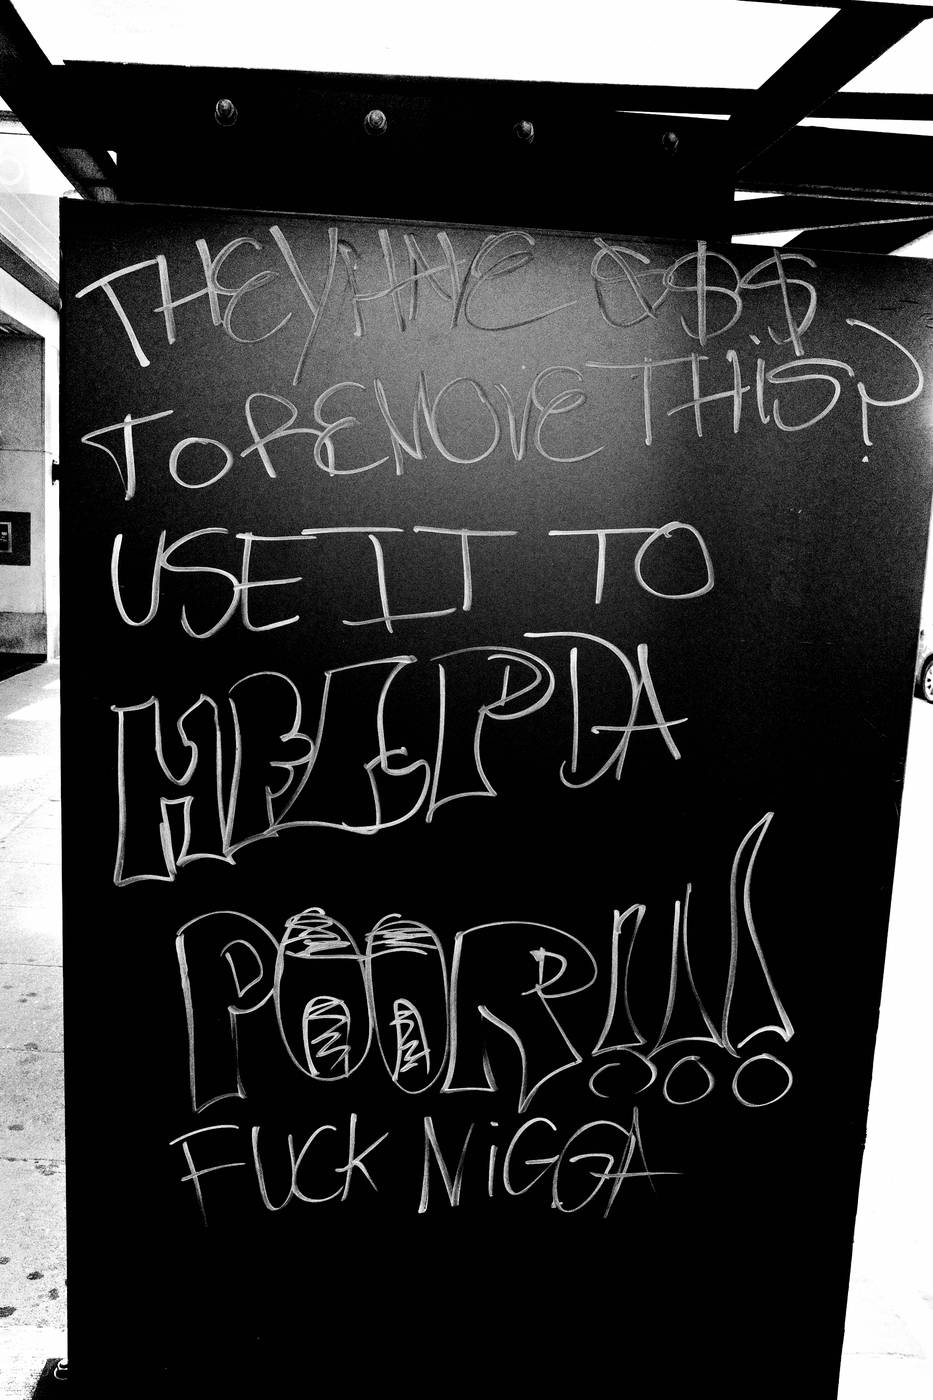 THEY HAVE $$$
TO REMOVE THiS?
USE IT TO
HELP DA
POOR!!!
FUCK NiGGA